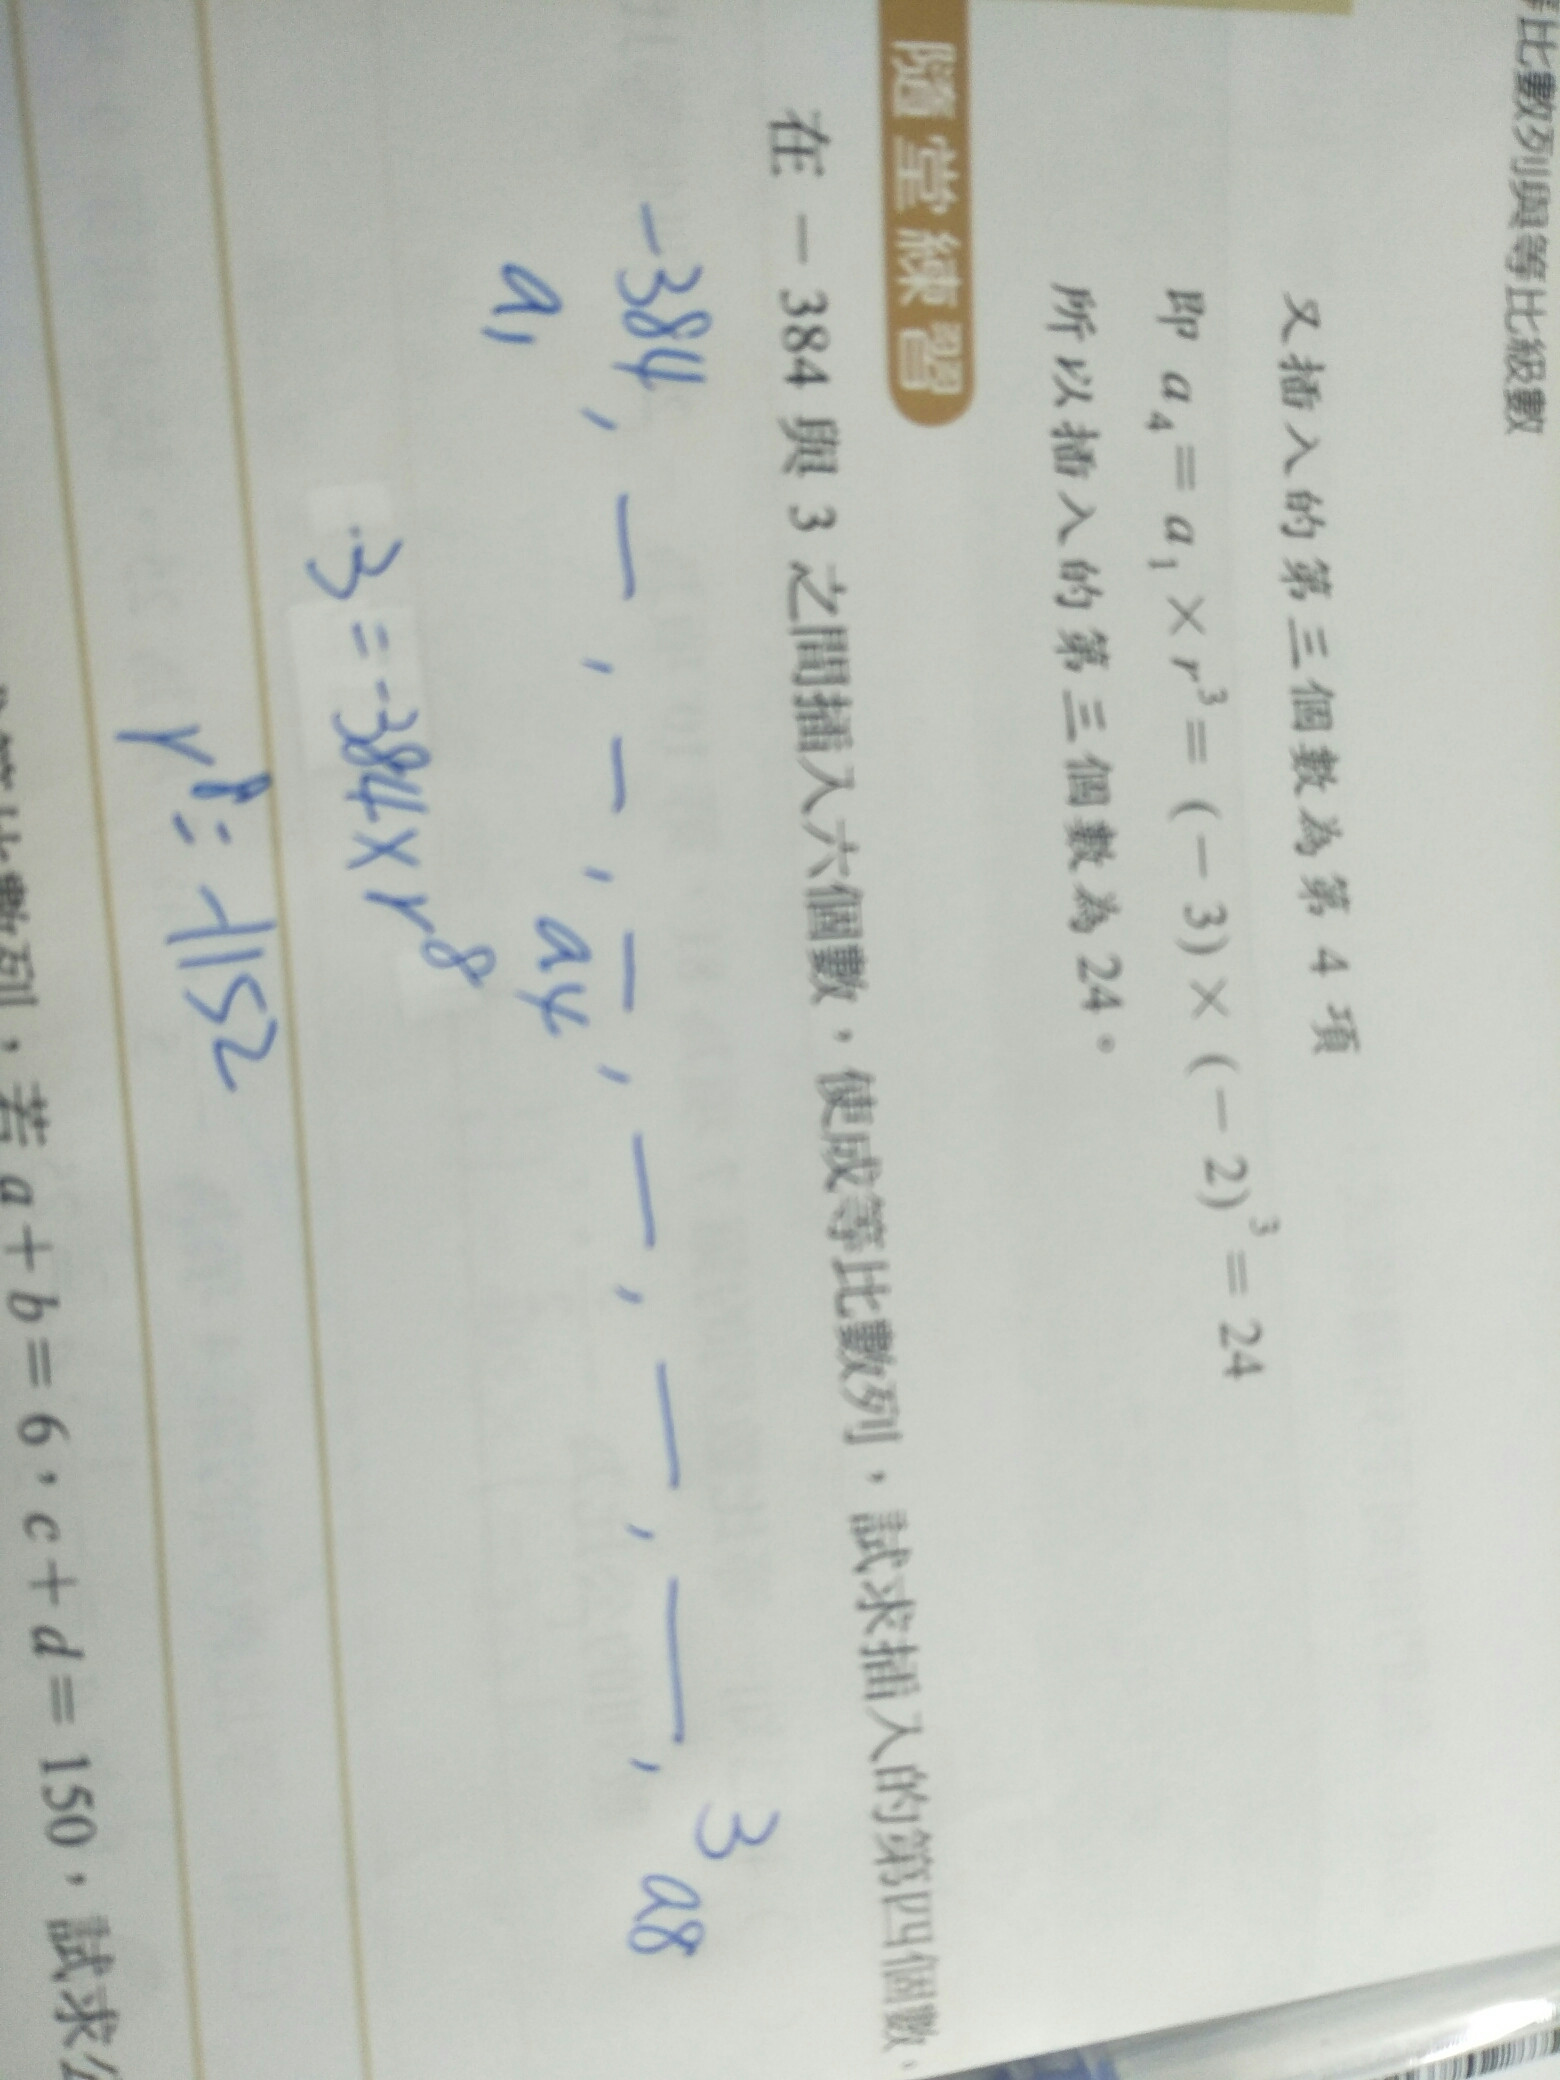 等比數列與等比級數
又插入的第三個數為第 4 項
即 a₄ = a₁ × r³ = (－3) × (－2)³ = 24
所以插入的第三個數為 24。
隨堂練習
在 －384 與 3 之間插入六個數，使成等比數列，試求插入的第四個數。
-384, _, _, _, _, _, _, 3
a₁ a₄ a8
3 = -384 × r⁸
r⁸ = -1152
等比數列，若 a＋b＝6，c＋d＝150，試求公